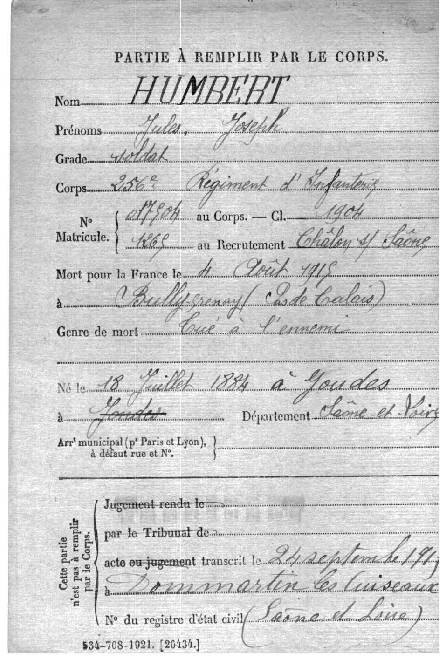 PARTIE À REMPLIR PAR LE CORPS.
Nom HUMBERT
Prénoms Jules, Joseph
Grade soldat
Corps 256e Régiment d'Infanterie
N° Matricule. 017904 au Corps. — Cl. 1904
1265 au Recrutement Châlon s/ Saône
Mort pour la France le 4 Août 1915
à Bully-Grenay (Pas de Calais)
Genre de mort Tué à l'ennemi
Né le 18 Juillet 1884 à Joudes
à Joudes Département Saône et Loire
Arrt municipal (pr Paris et Lyon),
à défaut rue et N°.
Cette partie n'est pas à remplir par le Corps.
Jugement rendu le
par le Tribunal de
acte ou jugement transcrit le 24 septembre 191
à Dommartin les Cuiseaux
N° du registre d'état civil (Saône et Loire)
534-708-1921. [26434.]